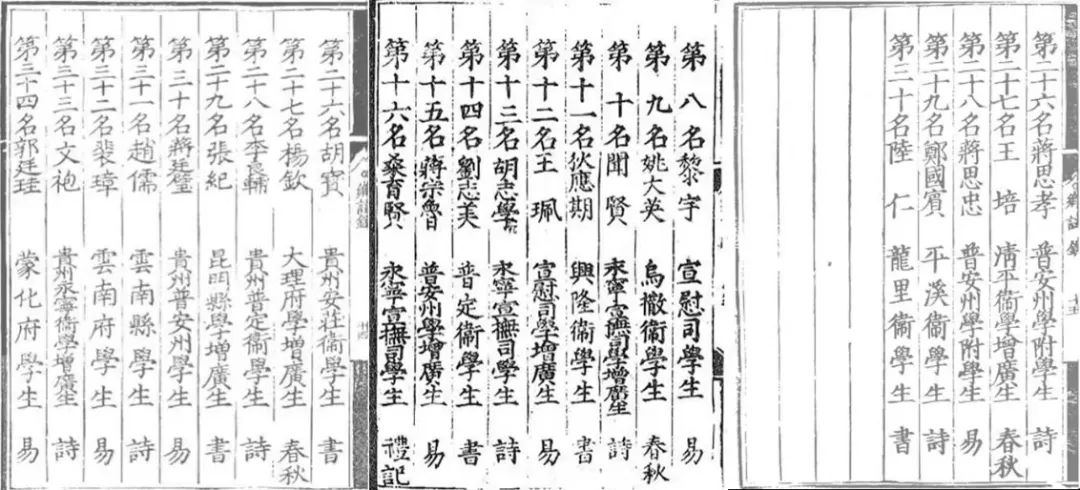 第二十六名胡寶 貴州安莊衛學生 書
第二十七名楊欽 大理府學增廣生 春秋
第二十八名李良輔 貴州普定衛學生 詩
第二十九名張紀 昆明縣學增廣生 書
第三十名蔣廷璧 貴州普安州學生 易
第三十一名趙儒 雲南縣學生 詩
第三十二名裴璋 雲南府學生 易
第三十三名文袍 貴州永寧衛學增廣生 詩
第三十四名郭廷珪 蒙化府學生 易
鄉試錄
第八名黎宇 宣慰司學生 易
第九名姚大英 烏撒衛學生 春秋
第十名聞賢 永寧宣撫司學增廣生 詩
第十一名狄應期 興隆衛學生 書
第十二名王珮 宣慰司學增廣生 易
第十三名胡志學 永寧宣撫司學生 詩
第十四名劉志美 普定衛學生 書
第十五名蔣宗魯 普安州學增廣生 易
第十六名桑育賢 永寧宣撫司學生 禮記
第二十六名蔣思孝 普安州學附學生 詩
第二十七名王培 清平衛學增廣生 春秋
第二十八名蔣思忠 普安州學附學生 易
第二十九名鄭國賓 平溪衛學生 詩
第三十名陸仁 龍里衛學生 書
鄉試錄